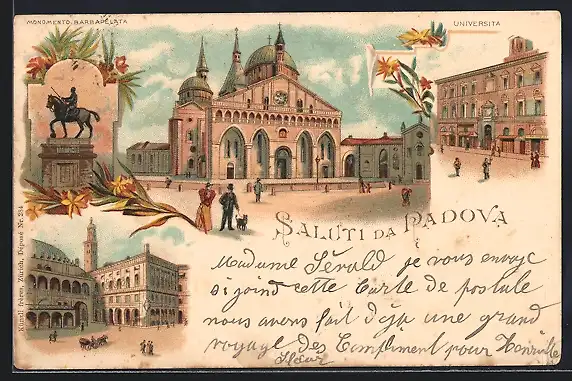 MONOMENTO BARBAPELATA
UNIVERSITA
SALUTI DA PADOVA
Künzli frères, Zürich, Déposé Nr. 234
Madame Sérald je vous envoye
si joind cette Carte de postale
nous avons fait déja une grand
voyage des Compliment pour Henriette